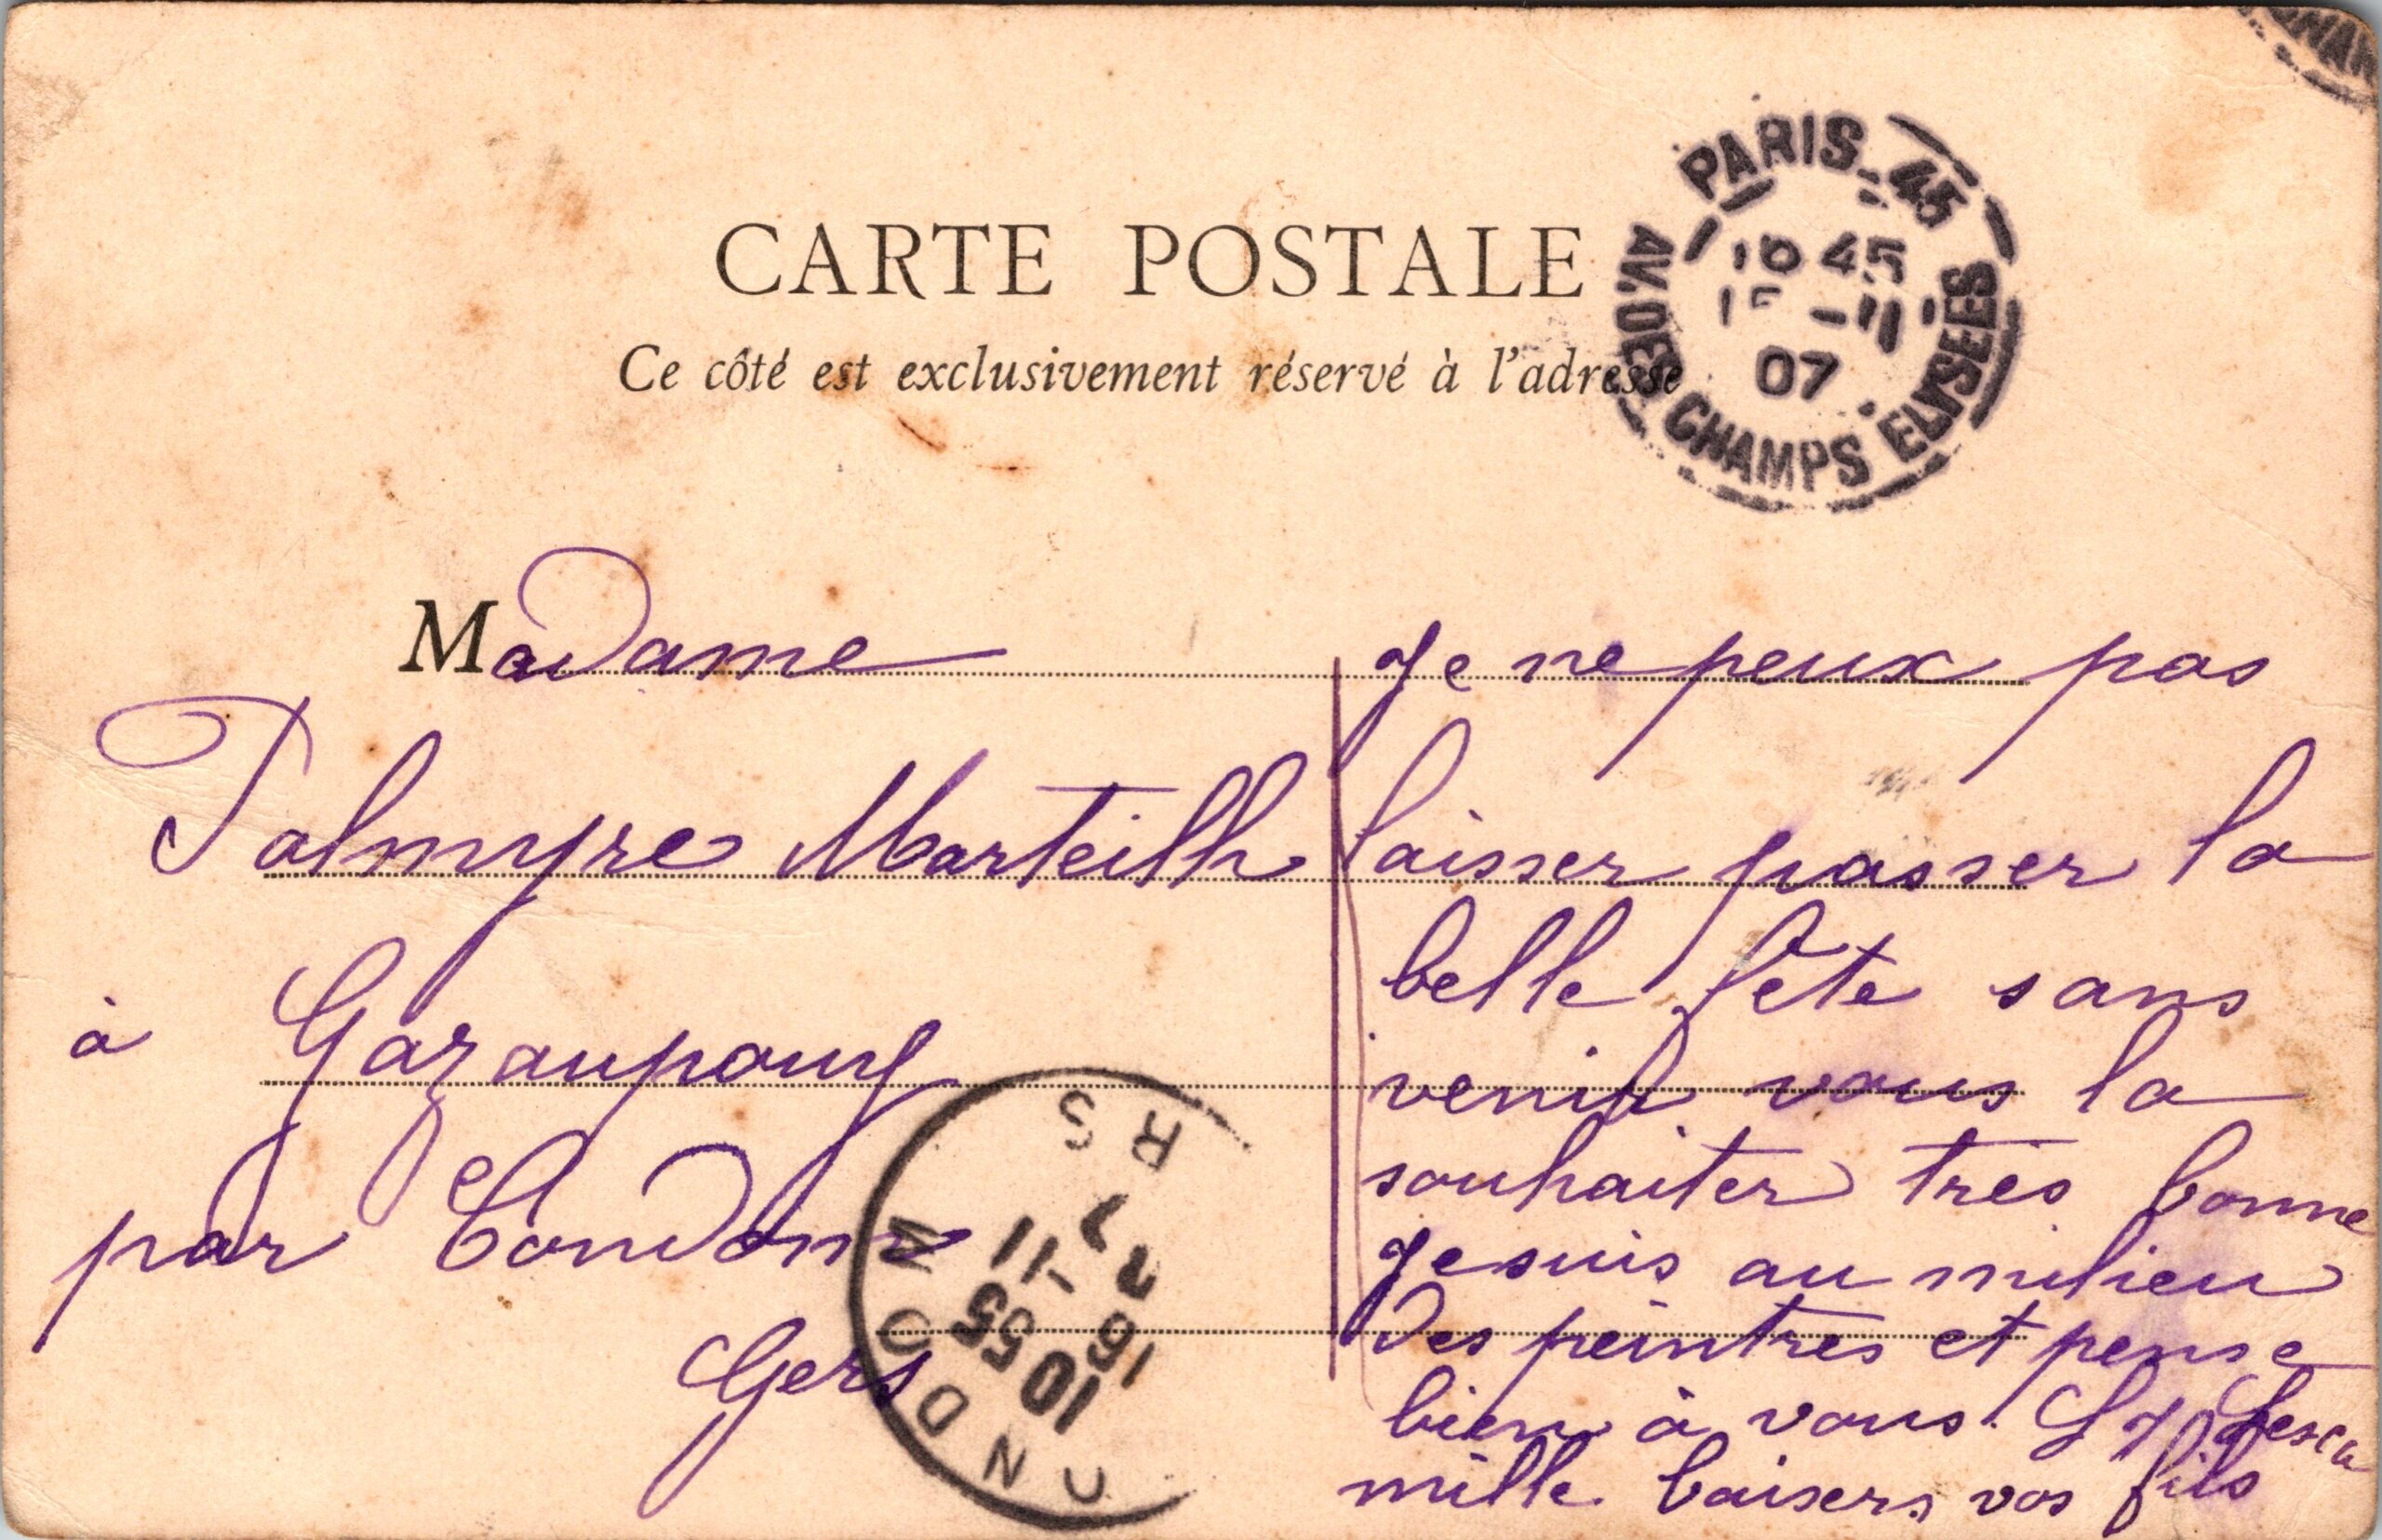 CARTE POSTALE
Ce côté est exclusivement réservé à l'adresse
PARIS 45
10 45
-11
07
AV. DES CHAMPS ELYSEES
Madame
Palmyre Marteilh
à Gazaupouy
par Condom
Gers
CONDOM
10 55
16 -11
GERS
Je ne peux pas
laisser passer la
belle fête sans
venir vous la
souhaiter très bonne
Je suis au milieu
des peintres et pense
bien à vous.
mille baisers vos fils